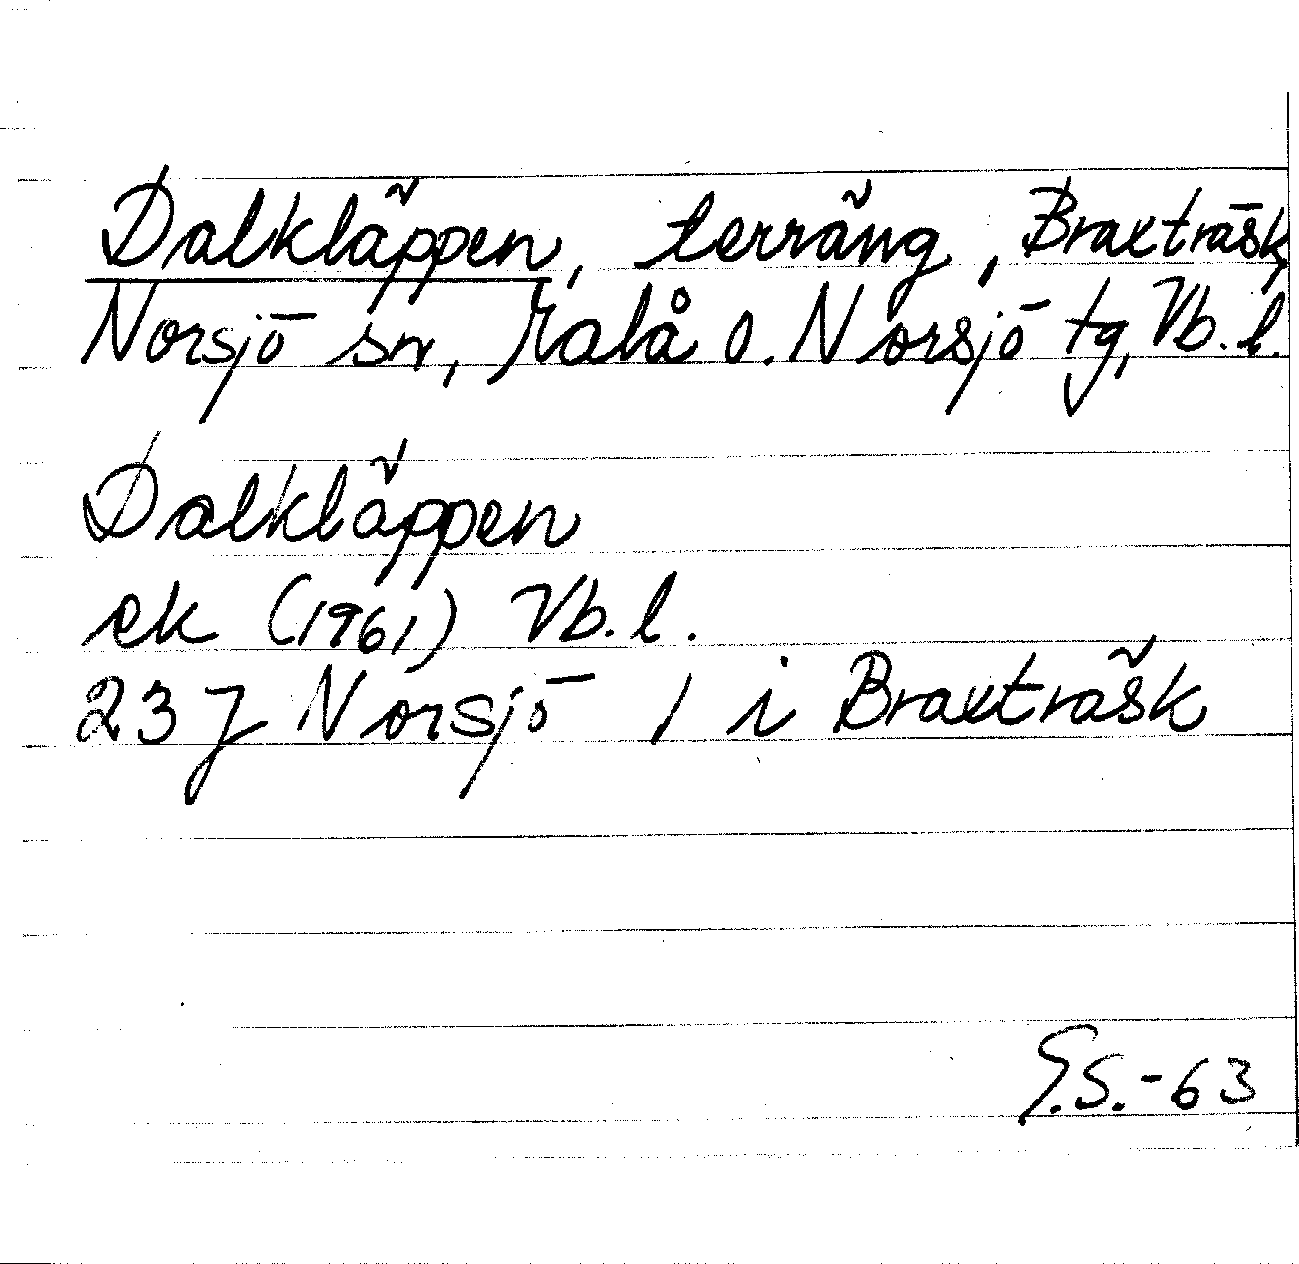 Dalkläppen, terräng, Braxträsk
Norsjö sn, Malå o. Norsjö tg, Vb. l.
Dalkläppen
ek (1961) Vb. l.
23 J Norsjö 1 i Braxträsk
G.S.-63